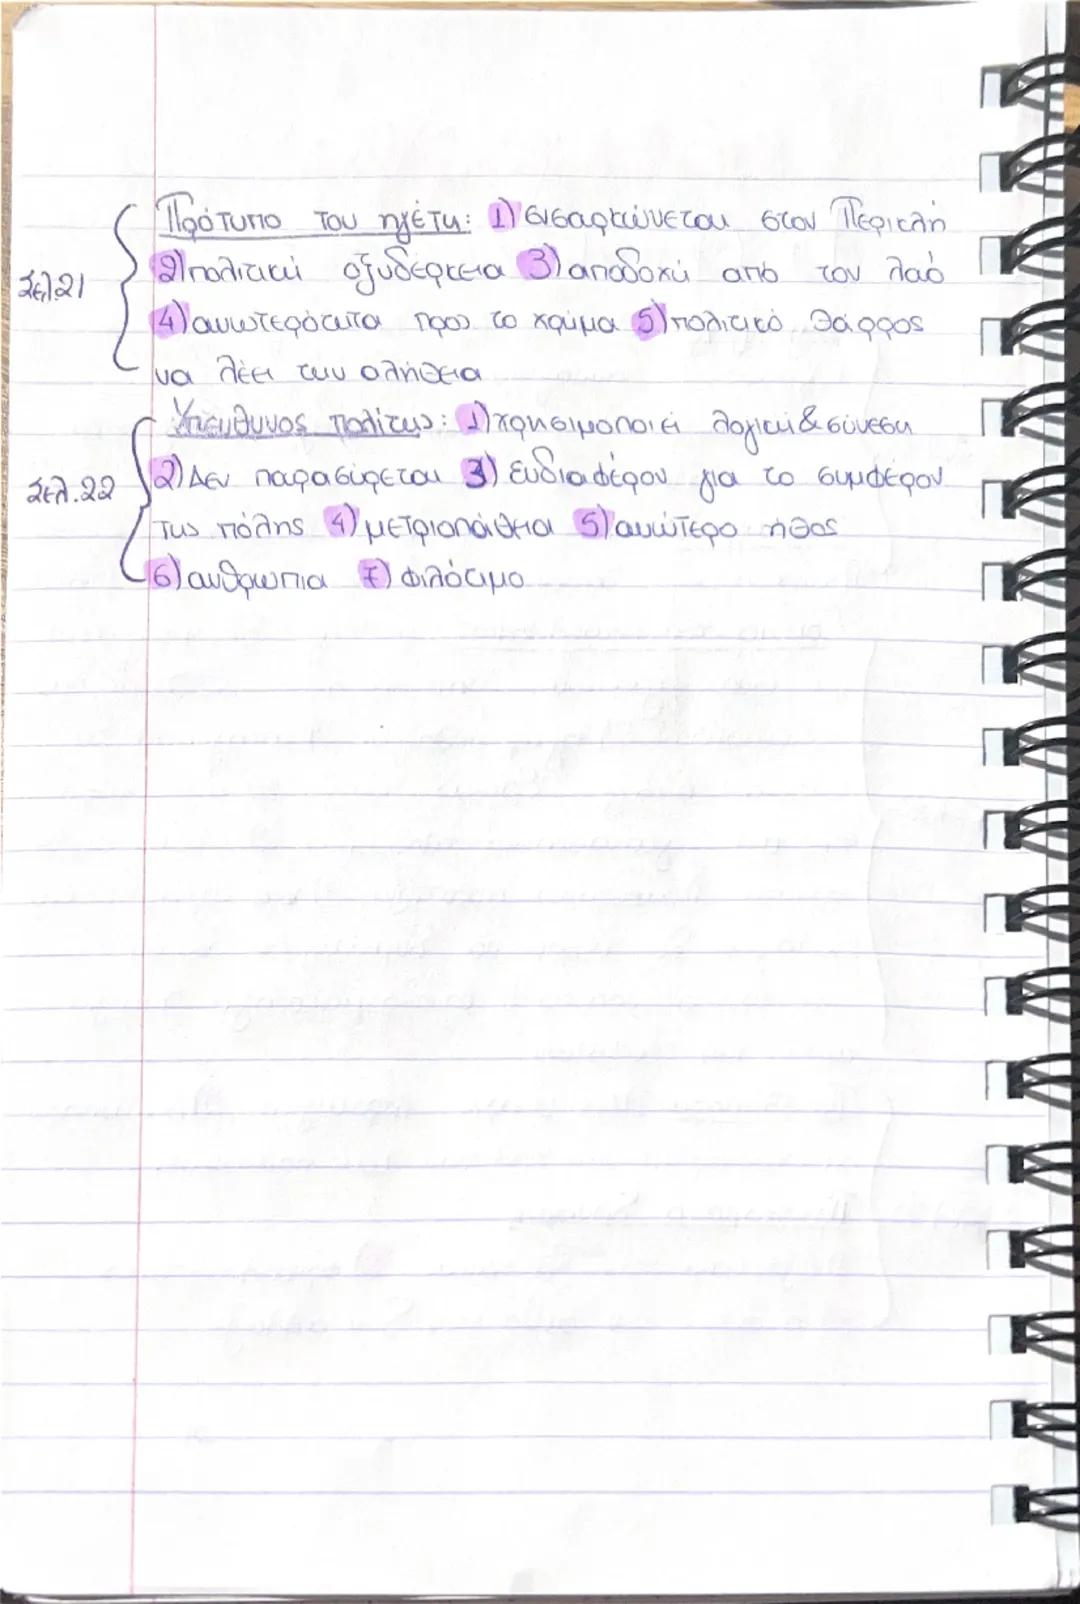 Πρότυπο του ηγέτη: 1) ενσαρκώνεται στον Περικλή
Σελ.21 2) πολιτική οξυδέρκεια 3) αποδοχή από τον λαό
4) ανωτερότητα προς το χρήμα 5) πολιτικό θάρρος
να λέει την αλήθεια
Υπεύθυνος πολίτης: 1) χρησιμοποιεί λογική & σύνεση
Σελ.22 2) Δεν παρασύρεται 3) Ενδιαφέρον για το συμφέρον
της πόλης 4) μετριοπάθεια 5) ανώτερο ήθος
6) ανθρωπιά 7) φιλότιμο